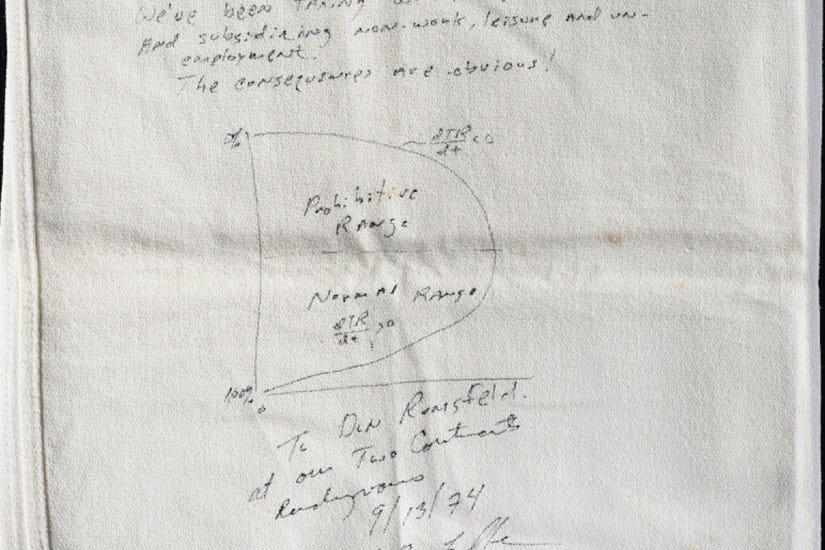 We've been taxing
And subsidizing non-work, leisure and un-
employment.
The consequences are obvious!
%
dTR/dt < 0
Prohibitive
Range
Normal Range
dTR/dt > 0
100%
0
To Don Rumsfeld.
at our Two Continents
Rendezvous
9/13/74